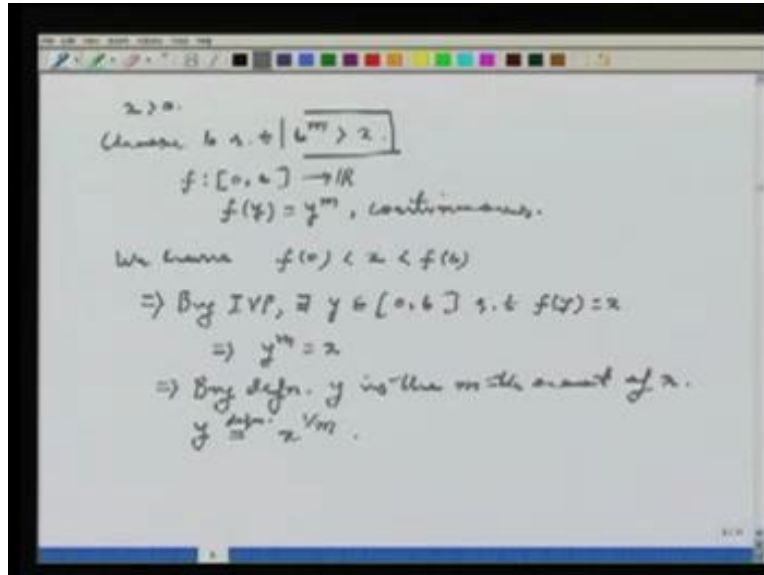 x > 0.
Choose b s.t b^m > x.
f : [0, b] → ℝ
f(y) = y^m, continuous.
We have f(0) < x < f(b)
⇒ By IVP, ∃ y ∈ [0, b] s.t f(y) = x
⇒ y^m = x
⇒ By defn. y is the m-th root of x.
y defn. = x^{1/m}.